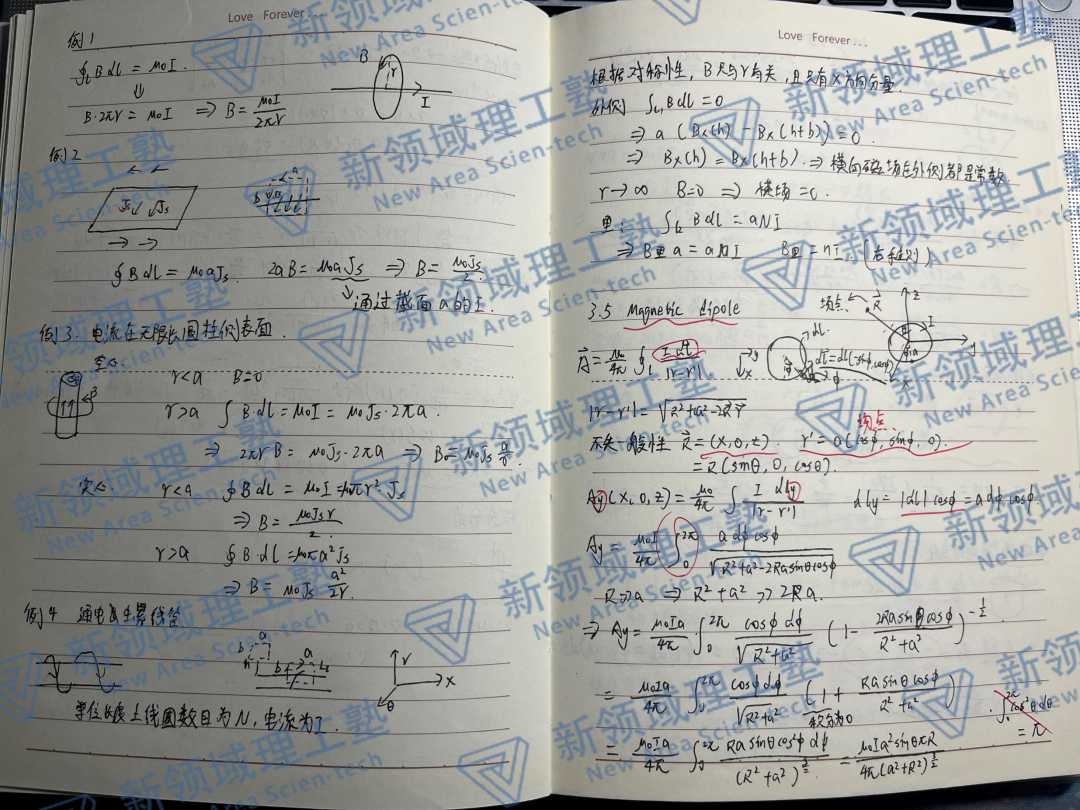 Love Forever...
例1
∮_L B dl = μ₀I.
⇓
B·2πr = μ₀I ⇒ B = μ₀I/2πr
B r I
例2
Js Js
a b
∮ B dl = μ₀aJs. 2aB = μ₀aJs ⇒ B = μ₀Js/2.
通过截面a的I.
例3. 电流在无限长圆柱侧表面.
空心:
r<a B=0
B
r>a ∫ B·dl = μ₀I = μ₀Js·2πa.
⇒ 2πrB = μ₀Js·2πa ⇒ B₀ = μ₀Js a/r.
实心: r<a ∮ B dl = μ₀I = μ₀πr²·Js
⇒ B = μ₀Jsr/2.
r>a ∮ B·dl = μ₀πa²Js
⇒ B = μ₀Js a²/2r.
例4 通电直螺线管
a b h b a r x θ
单位长度上线圈数目为N, 电流为I.
Love Forever...
根据对称性, B只与r有关, 且只有X方向分量.
外侧 ∫_{L₁} B dl = 0
⇒ a (Bx(h) − Bx(h+b)) = 0.
⇒ Bx(h) = Bx(h+b). ⇒ 横向磁场在外侧都是常数.
r→∞ B=0 ⇒ 横场=0.
里: ∫_{L₂} B dl = aNI
⇒ B里 a = a n I B里 = nI. (右手定则)
3.5 Magnetic dipole
场点 R z I y a x
A⃗ = μ₀/4π ∮_L I dl⃗/|r−r'|
dl. y x φ dl⃗ = dl(−sinφ, cosφ)
|r−r'| = √(R²+a²−2R⃗·r⃗')
源点
不失一般性 R⃗ = (X,0,z). r' = a(cosφ, sinφ, 0).
= R(sinθ, 0, cosθ).
Ay(x,0,z) = μ₀/4π ∫ I dly/|r−r'| dly = |dl|cosφ = a dφ cosφ.
Ay = μ₀I/4π ∫₀^{2π} a dφ cosφ/√(R²+a²−2Ra sinθcosφ)
R≫a ⇒ R²+a² ≫ 2Ra.
⇒ Ay = μ₀Ia/4π · ∫₀^{2π} cosφ dφ/√(R²+a²) (1 − 2Ra sinθcosφ/(R²+a²))^{−1/2}
= μ₀Ia/4π ∫₀^{2π} cosφ dφ/√(R²+a²) (1 + Ra sinθcosφ/(R²+a²))
积分为0
∫₀^{2π} cos²θ dθ = π
= μ₀Ia/4π ∫₀^{2π} Ra sinθcos²φ dφ/(R²+a²)^{3/2} = μ₀Ia² sinθπR/4π(a²+R²)^{3/2}
新领域理工塾
New Area Scien-tech